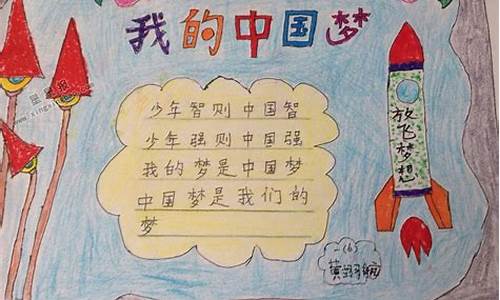 我的中国梦
少年智则中国智
少年强则中国强
我的梦是中国梦
中国梦是我们的
梦
放飞梦想